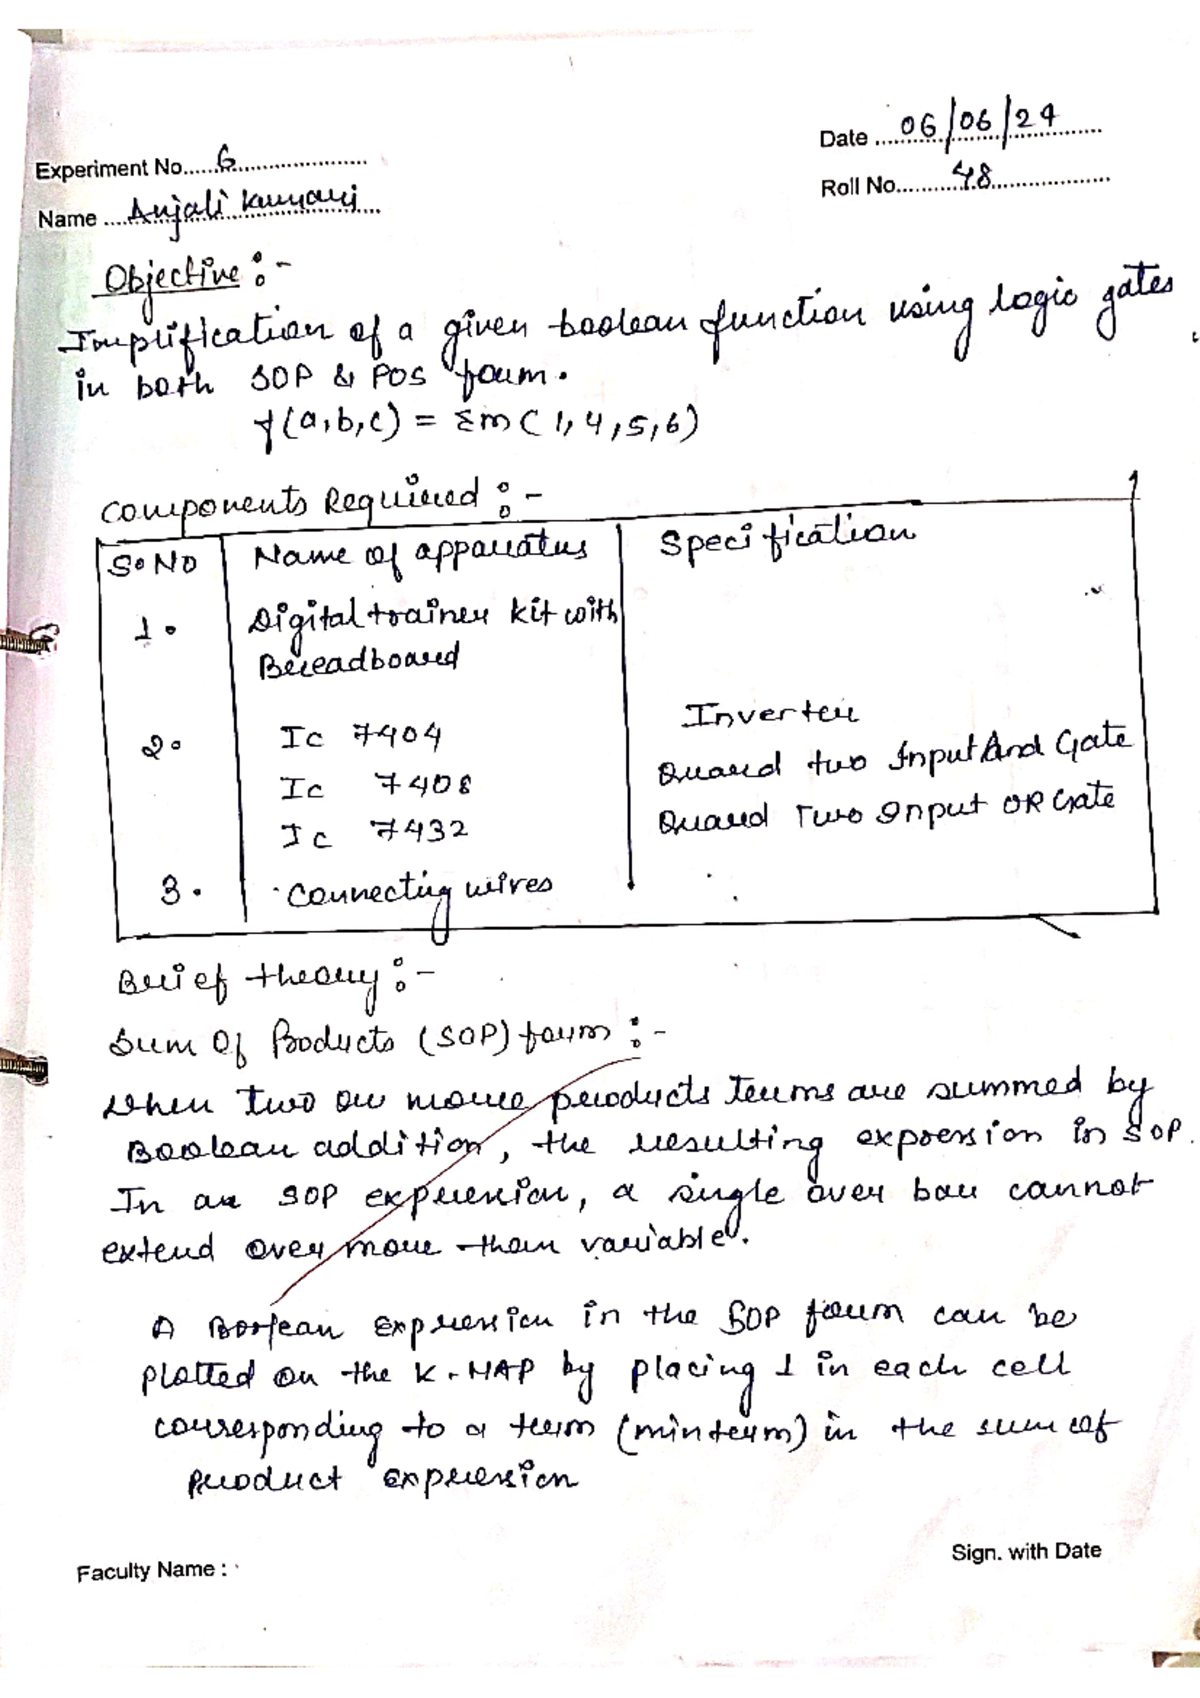 Date 06/06/24
Experiment No. 6
Roll No. 48
Name Anjali Kumari
Objective :-
Implification of a given boolean function using logic gates
in both SOP & POS form.
f(a,b,c) = Σm( 1, 4, 5, 6)
Components Required :-
S.No Name of apparatus Specification
1. Digital trainer kit with
Breadboard
2. Ic 7404 Inverter
Ic 7408 Quard two Input And Gate
Ic 7432 Quard Two Input OR Gate
3. Connecting wires
Brief theory :-
Sum Of Products (SOP) form :-
When two or more products terms are summed by
Boolean addition, the resulting expression in SOP.
In an SOP expression, a single over bar cannot
extend over more than variable.
A Boolean expression in the SOP form can be
plotted on the K-MAP by placing 1 in each cell
corresponding to a term (minterm) in the sum of
product expression
Sign. with Date
Faculty Name :